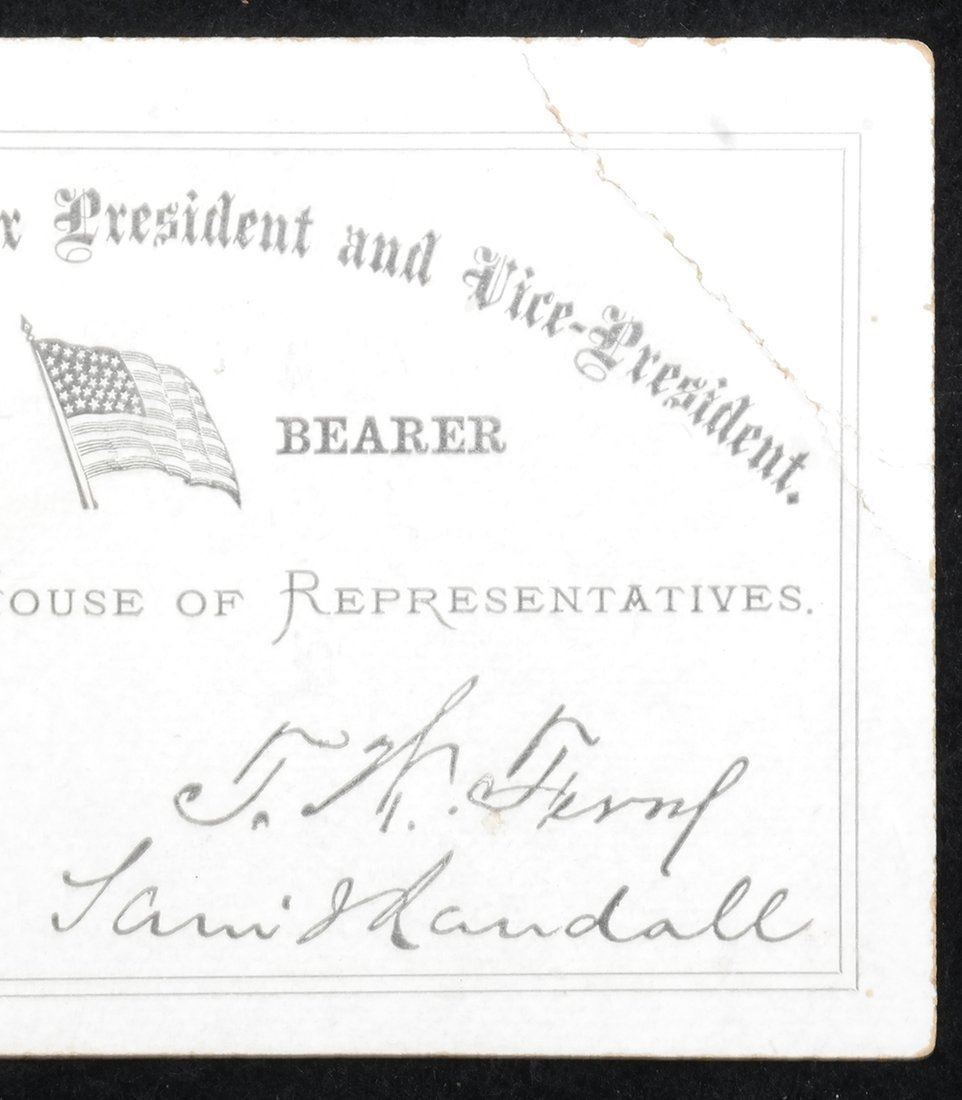 r President and Vice-President.
BEARER
HOUSE OF REPRESENTATIVES.
T. W. Ferry
Saml J Randall